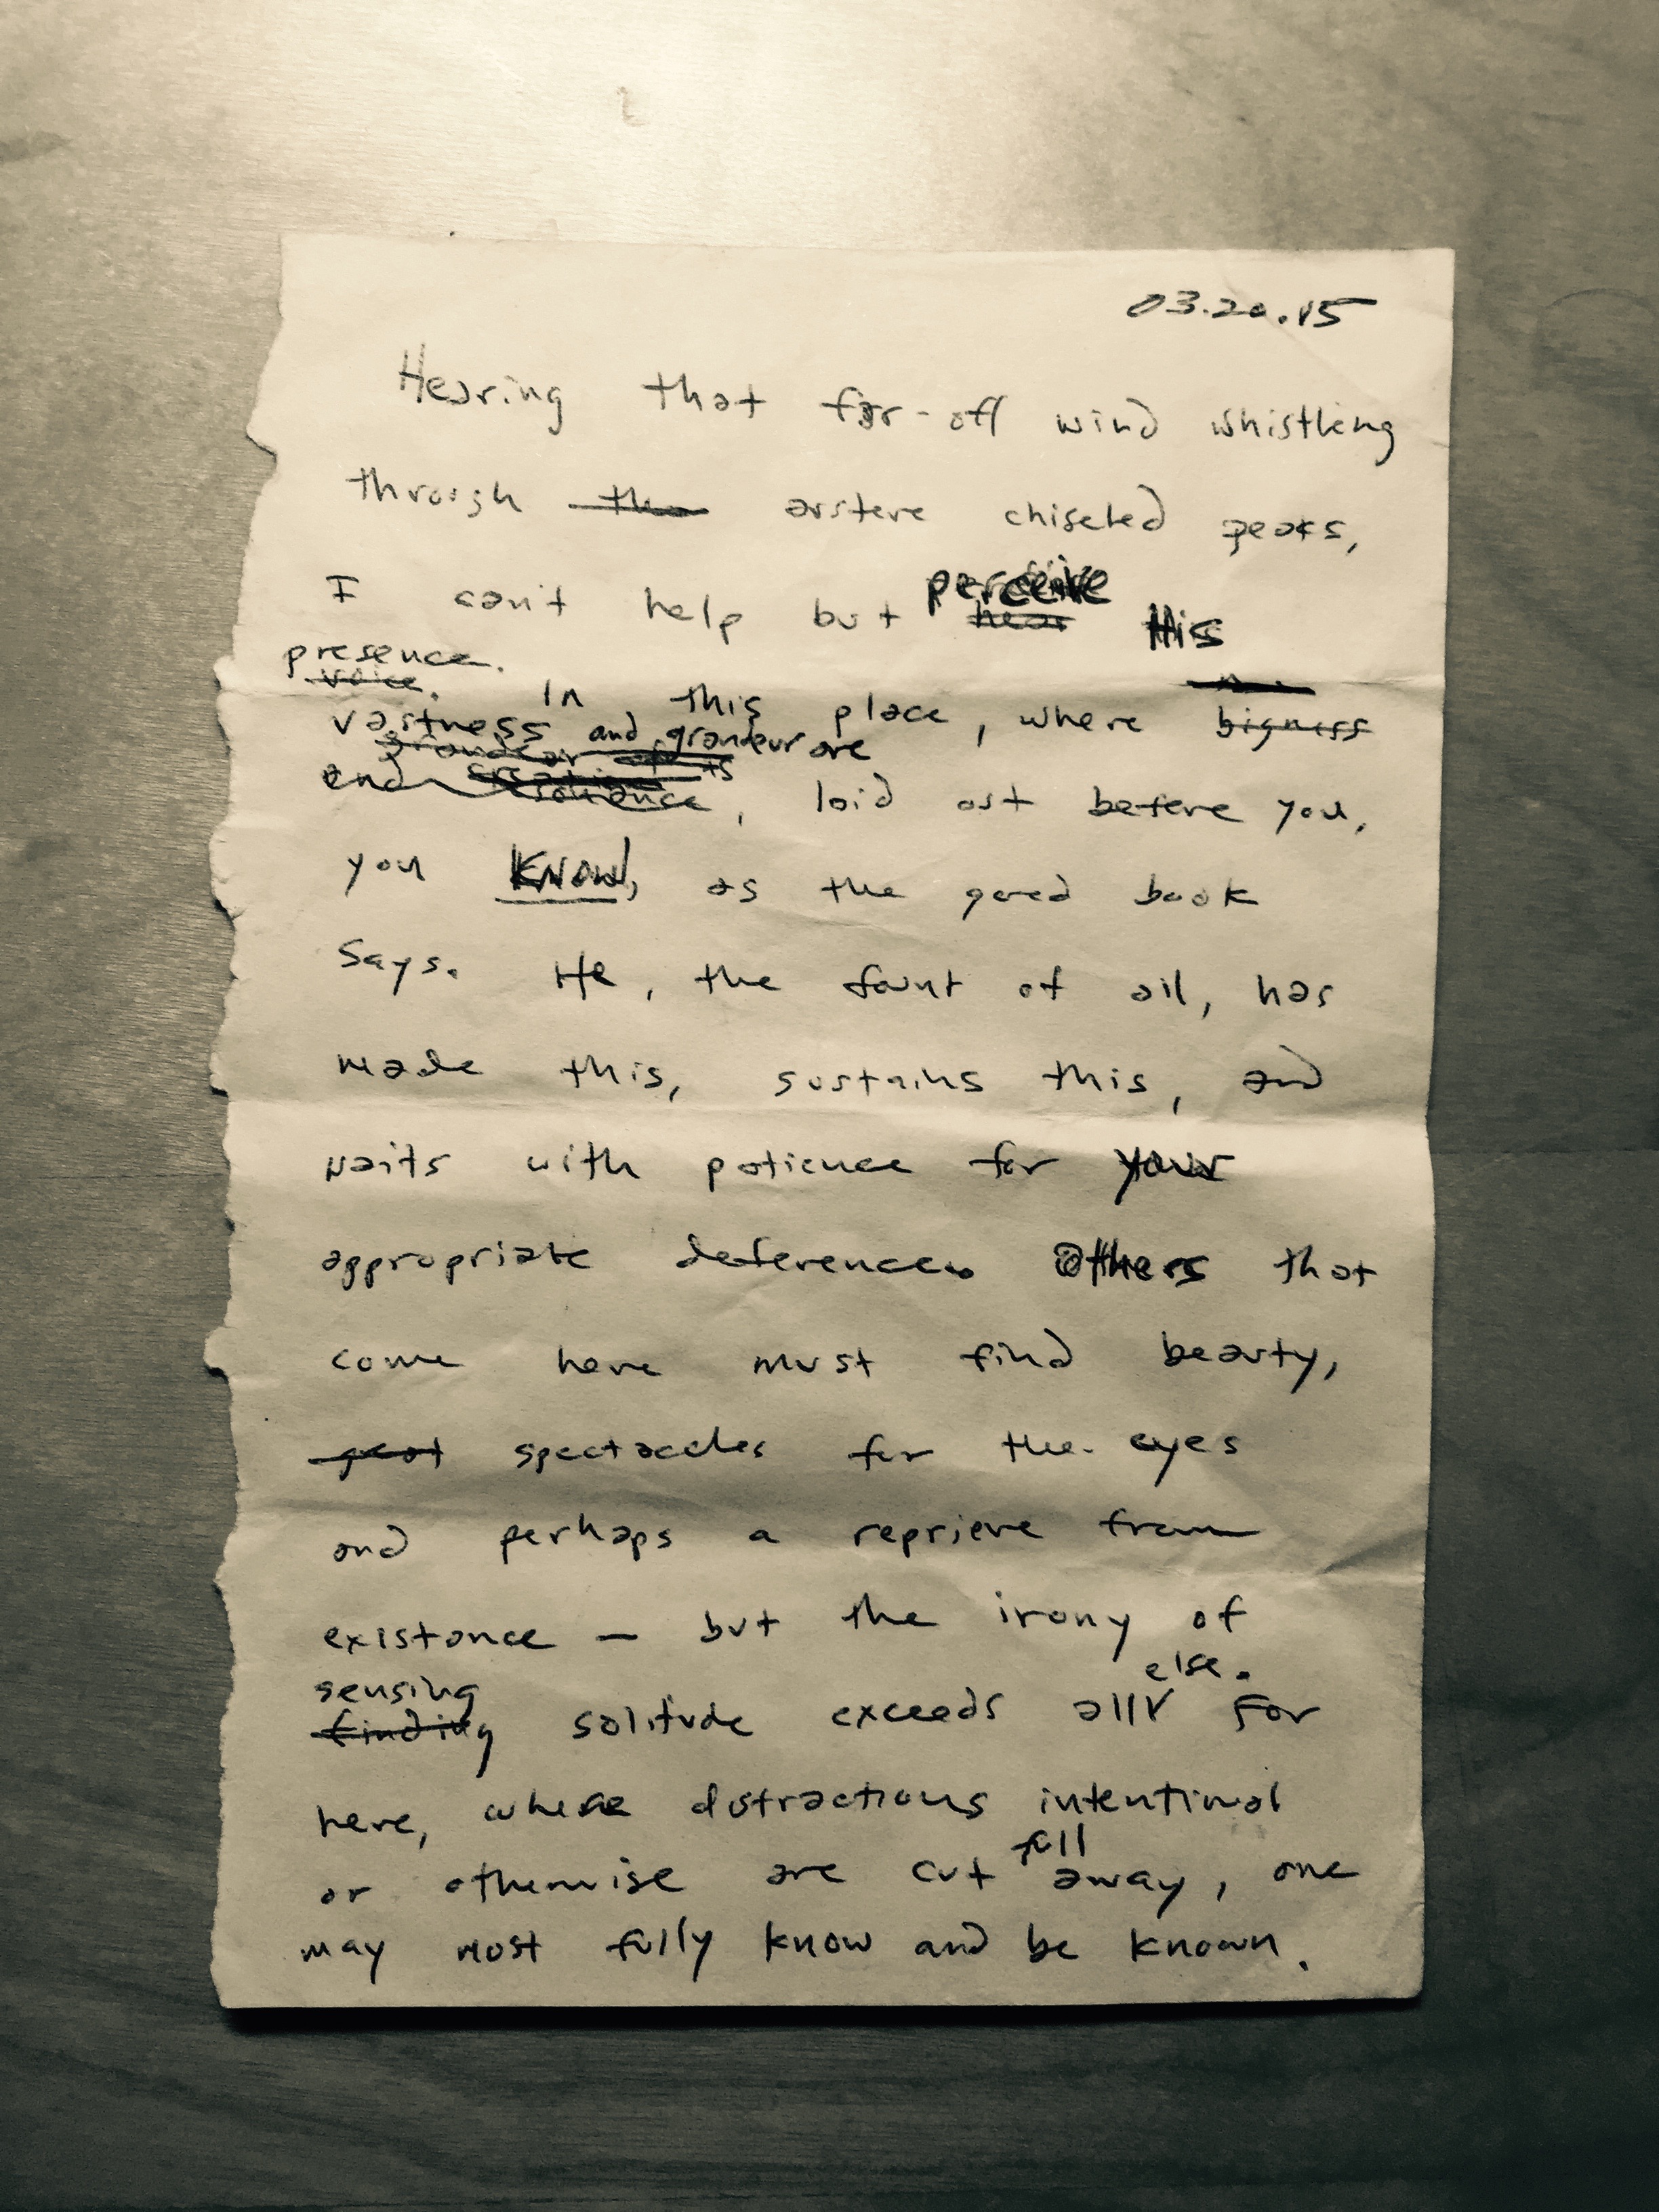 03.20.15
Hearing that far-off wind whistling
through the austere chiseled peaks,
I can't help but hear perceive His
presence.
voice. In this place, where bigness
vastness and granduer are
and, laid out before you,
you know, as the good book
says. He, the fount of all, has
made this, sustains this, and
waits with patience for your
appropriate deference. Others that
come here must find beauty,
great spectacles for the eyes
and perhaps a reprieve from
existance — but the irony of
sensing else.
finding solitude exceeds all for
here, where distractions intentional
full
or otherwise are cut away, one
may most fully know and be known.